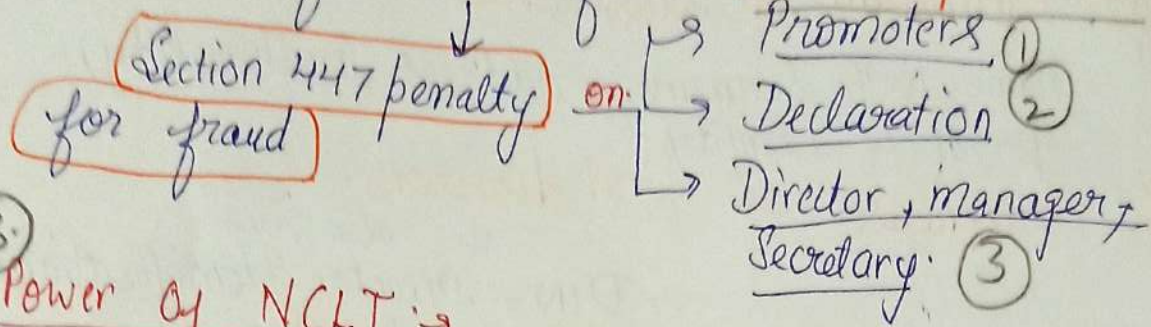 Section 447 penalty
for fraud
on
Promoters ①
Declaration ②
Director, manager,
Secretary. ③
Power of NCLT :→